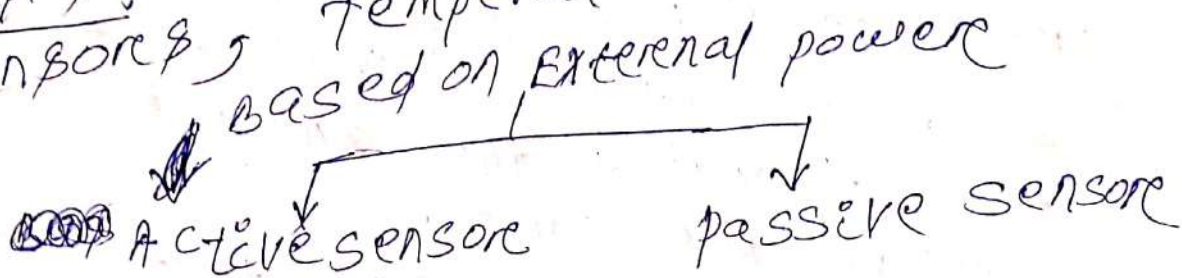 nsores, Tempera
Based on External powere
Active sensore passive sensore